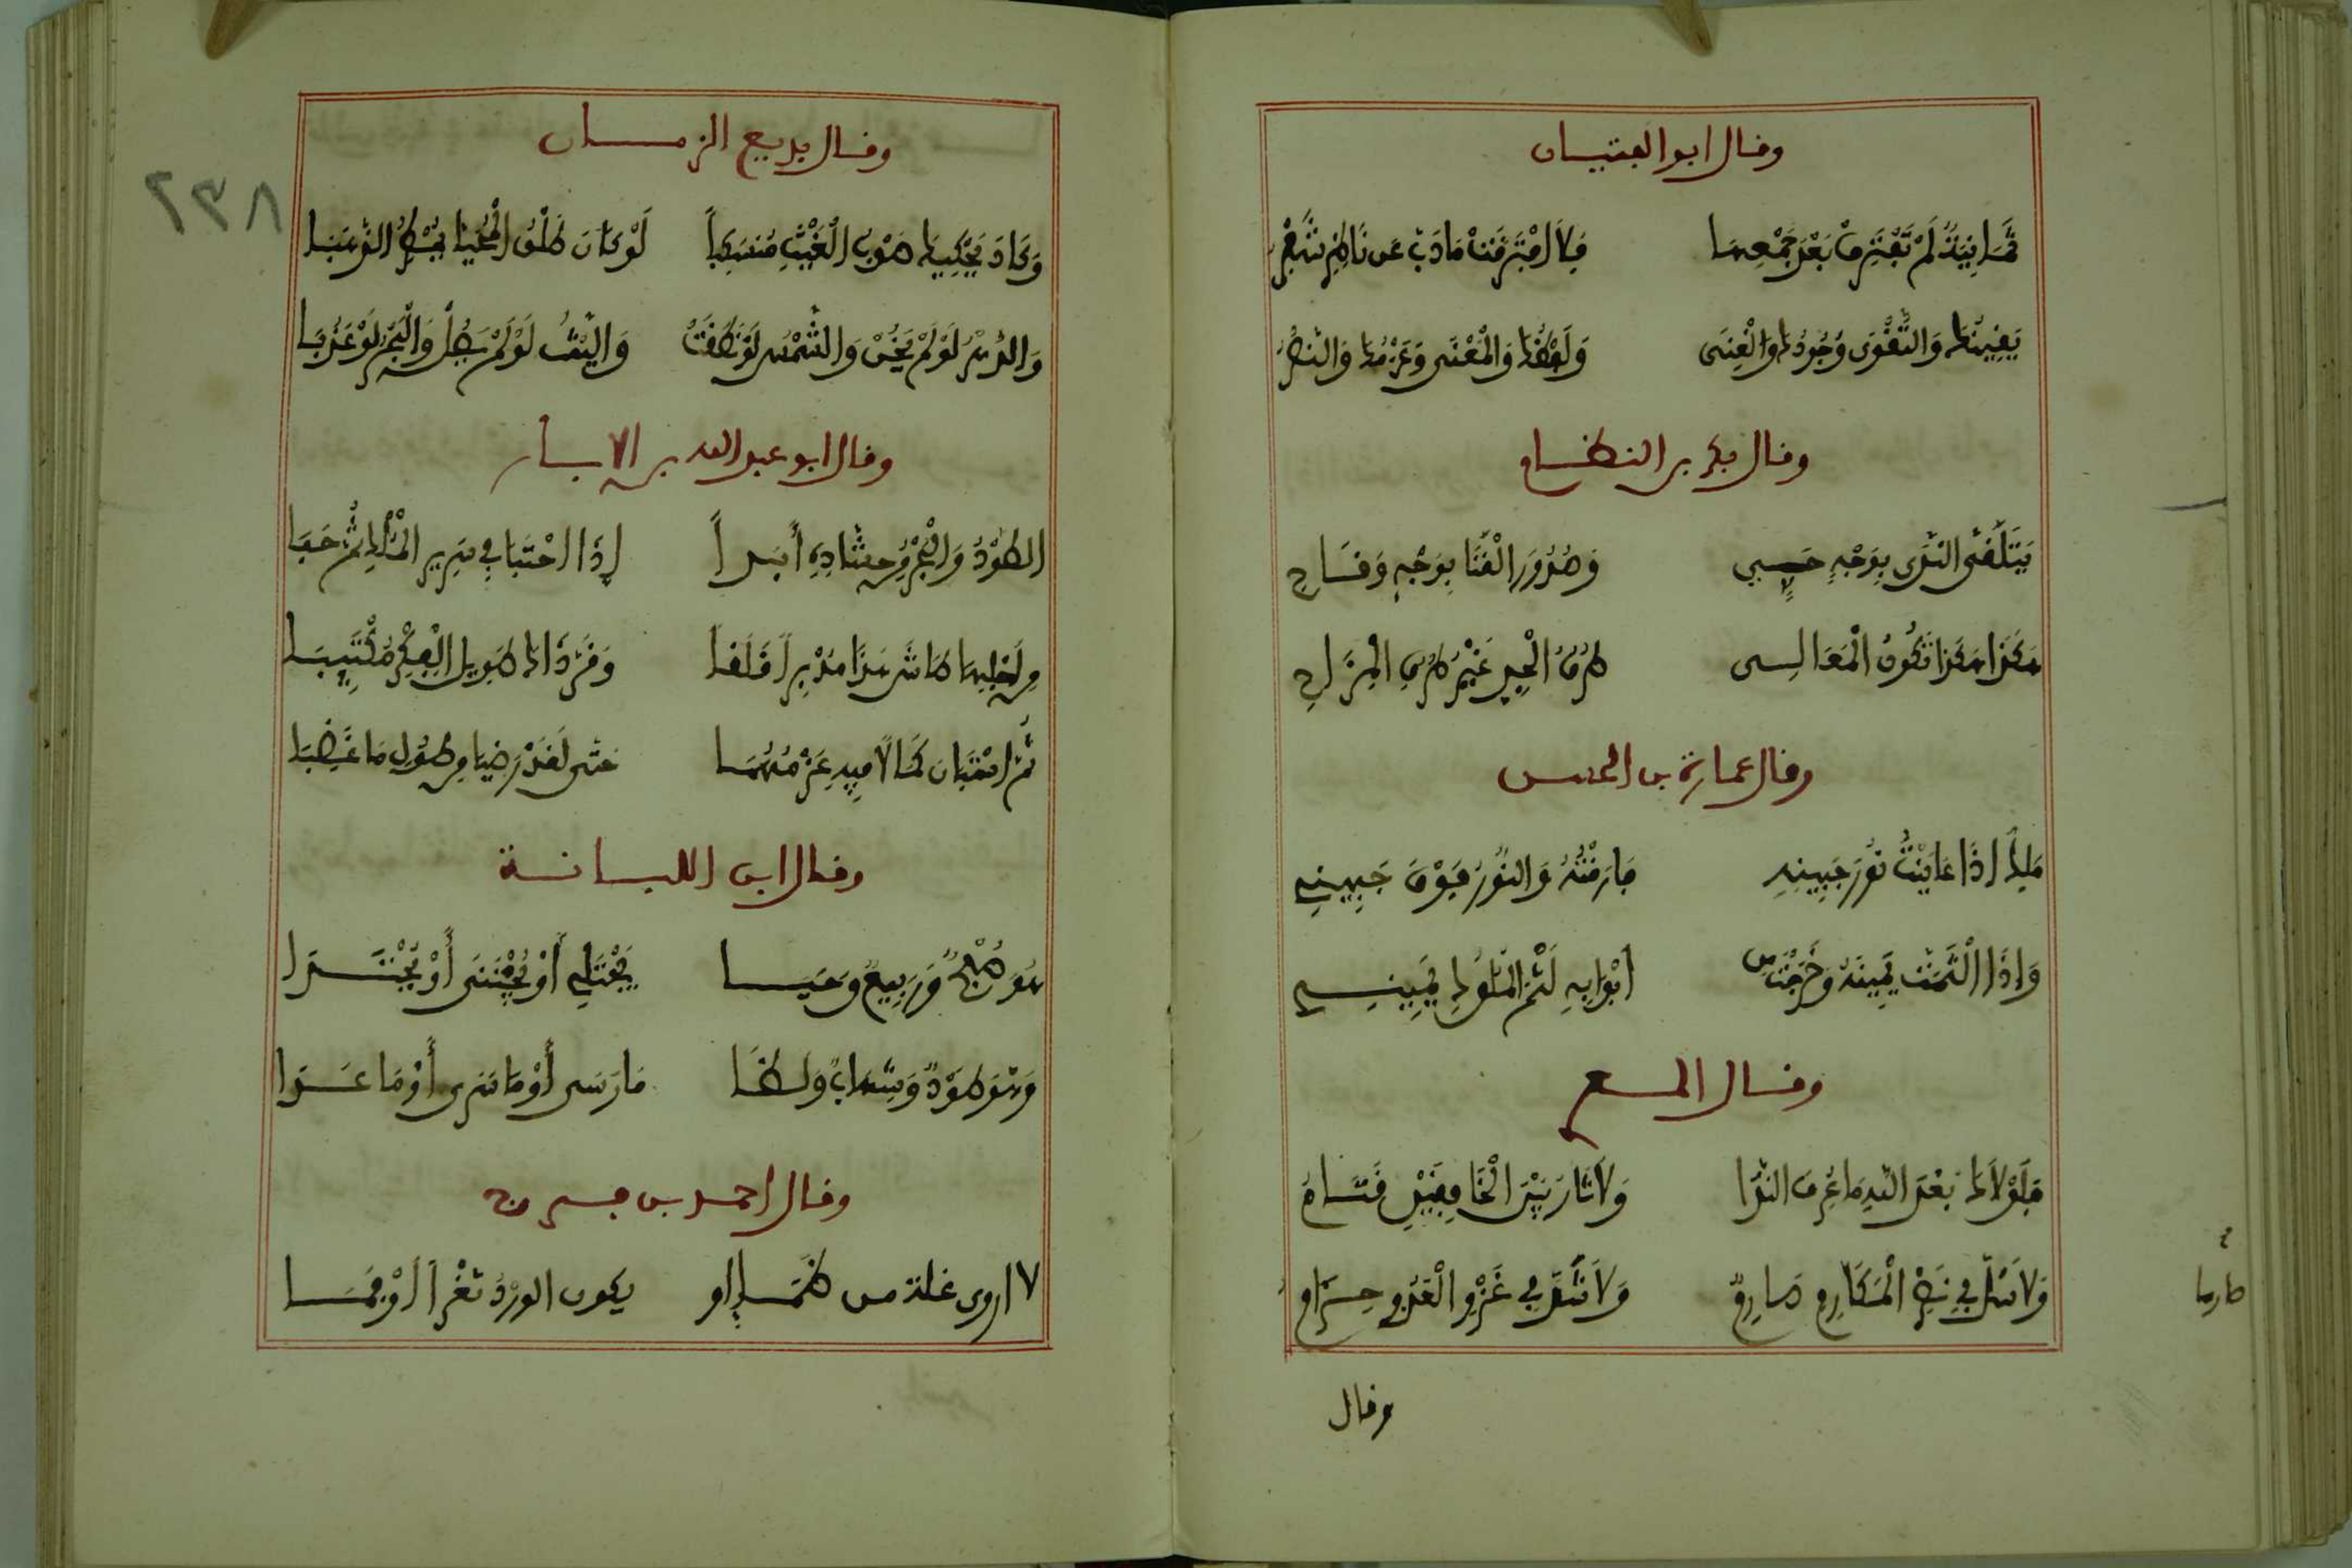 وقال ابو الفتيان
ثَمَانِيَةٌ لَمْ تَفْتَرِقْ مُذْ جَمَعْتَهَا فَلاَ افْتَرَقَتْ مَا ذَبَّ عَن نَاظِرٍ شُفْرُ
يَقِينُكَ وَالتَّقْوَى وَجُودُكَ وَالْغِنَى وَلَفْظُكَ وَالْمَعْنَى وَعَزْمُكَ وَالنَّصْرُ
وقال بكر بن النطاح
يَتَلَقَّى النَّدَى بِوَجْهٍ حَيِيٍّ وَصُدُورَ الْقَنَا بِوَجْهٍ وَقَاحِ
هَكَذَا هَكَذَا تَكُونُ الْمَعَالِي طُرُقُ الْجِدِّ غَيْرُ طُرُقِ الْمِزَاحِ
وقال عمارة بن الحسن
مَلِكٌ إِذَا عَايَنْتُ نُورَ جَبِينِهِ فَارَقْتُهُ وَالنُّورُ فَوْقَ جَبِينِي
وَإِذَا الْتَثَمْتُ يَمِينَهُ وَخَرَجْتُ مِنْ أَبْوَابِهِ لَثَمَ الْمُلُوكُ يَمِينِي
وقال
فَلَوْلاَكَ بَعْدَ اللهِ مَا عُرِفَ النَّدَا وَلاَ ثَارَ بَيْنَ الْخَافِقَيْنِ قَتَامُ
وَلاَ سُلَّ فِي نَصْرِ الْمَكَارِمِ صَارِمٌ وَلاَ شُدَّ فِي غَزْوِ الْعَدُوِّ حِزَامُ
صارما
وقال
٢٣٨
وقال بديع الزمان
وَكَادَ يَحْكِيكَ صَوْبُ الْغَيْثِ مُنْسَكِباً لَوْ كَانَ طَلْقَ الْمُحَيَّا يُمْطِرُ الذَّهَبَا
وَالدَّهْرُ لَوْ لَمْ يَخُنْ وَالشَّمْسُ لَوْ نَطَقَتْ وَاللَّيْثُ لَوْ لَمْ يَصُلْ وَالْبَحْرُ لَوْ عَذُبَا
وقال ابو عبد الله بن الابار
الطَّوْدُ وَالْبَحْرُ مِن أَبَداً إِذَا احْتَبَا فِي سَرِيرِ الْمُلْكِ ثُمَّ حَبَا
وقال ابن اللبانة
هُوَ صُبْحٌ وَرَبِيعٌ وَحَيَا يُجْتَلَى أَوْ يُجْتَنَى أَوْ يُجْتَدَا
وَهُوَ طَوْدٌ وَشِهَابٌ وَلَظَا مَا رَسَى أَوْ مَا سَرَى أَوْ مَا عَدَا
وقال احمد بن فرج
لاروى غلة من ظمإ او يكون الورد ثَغْراً أَوْ فَمَا